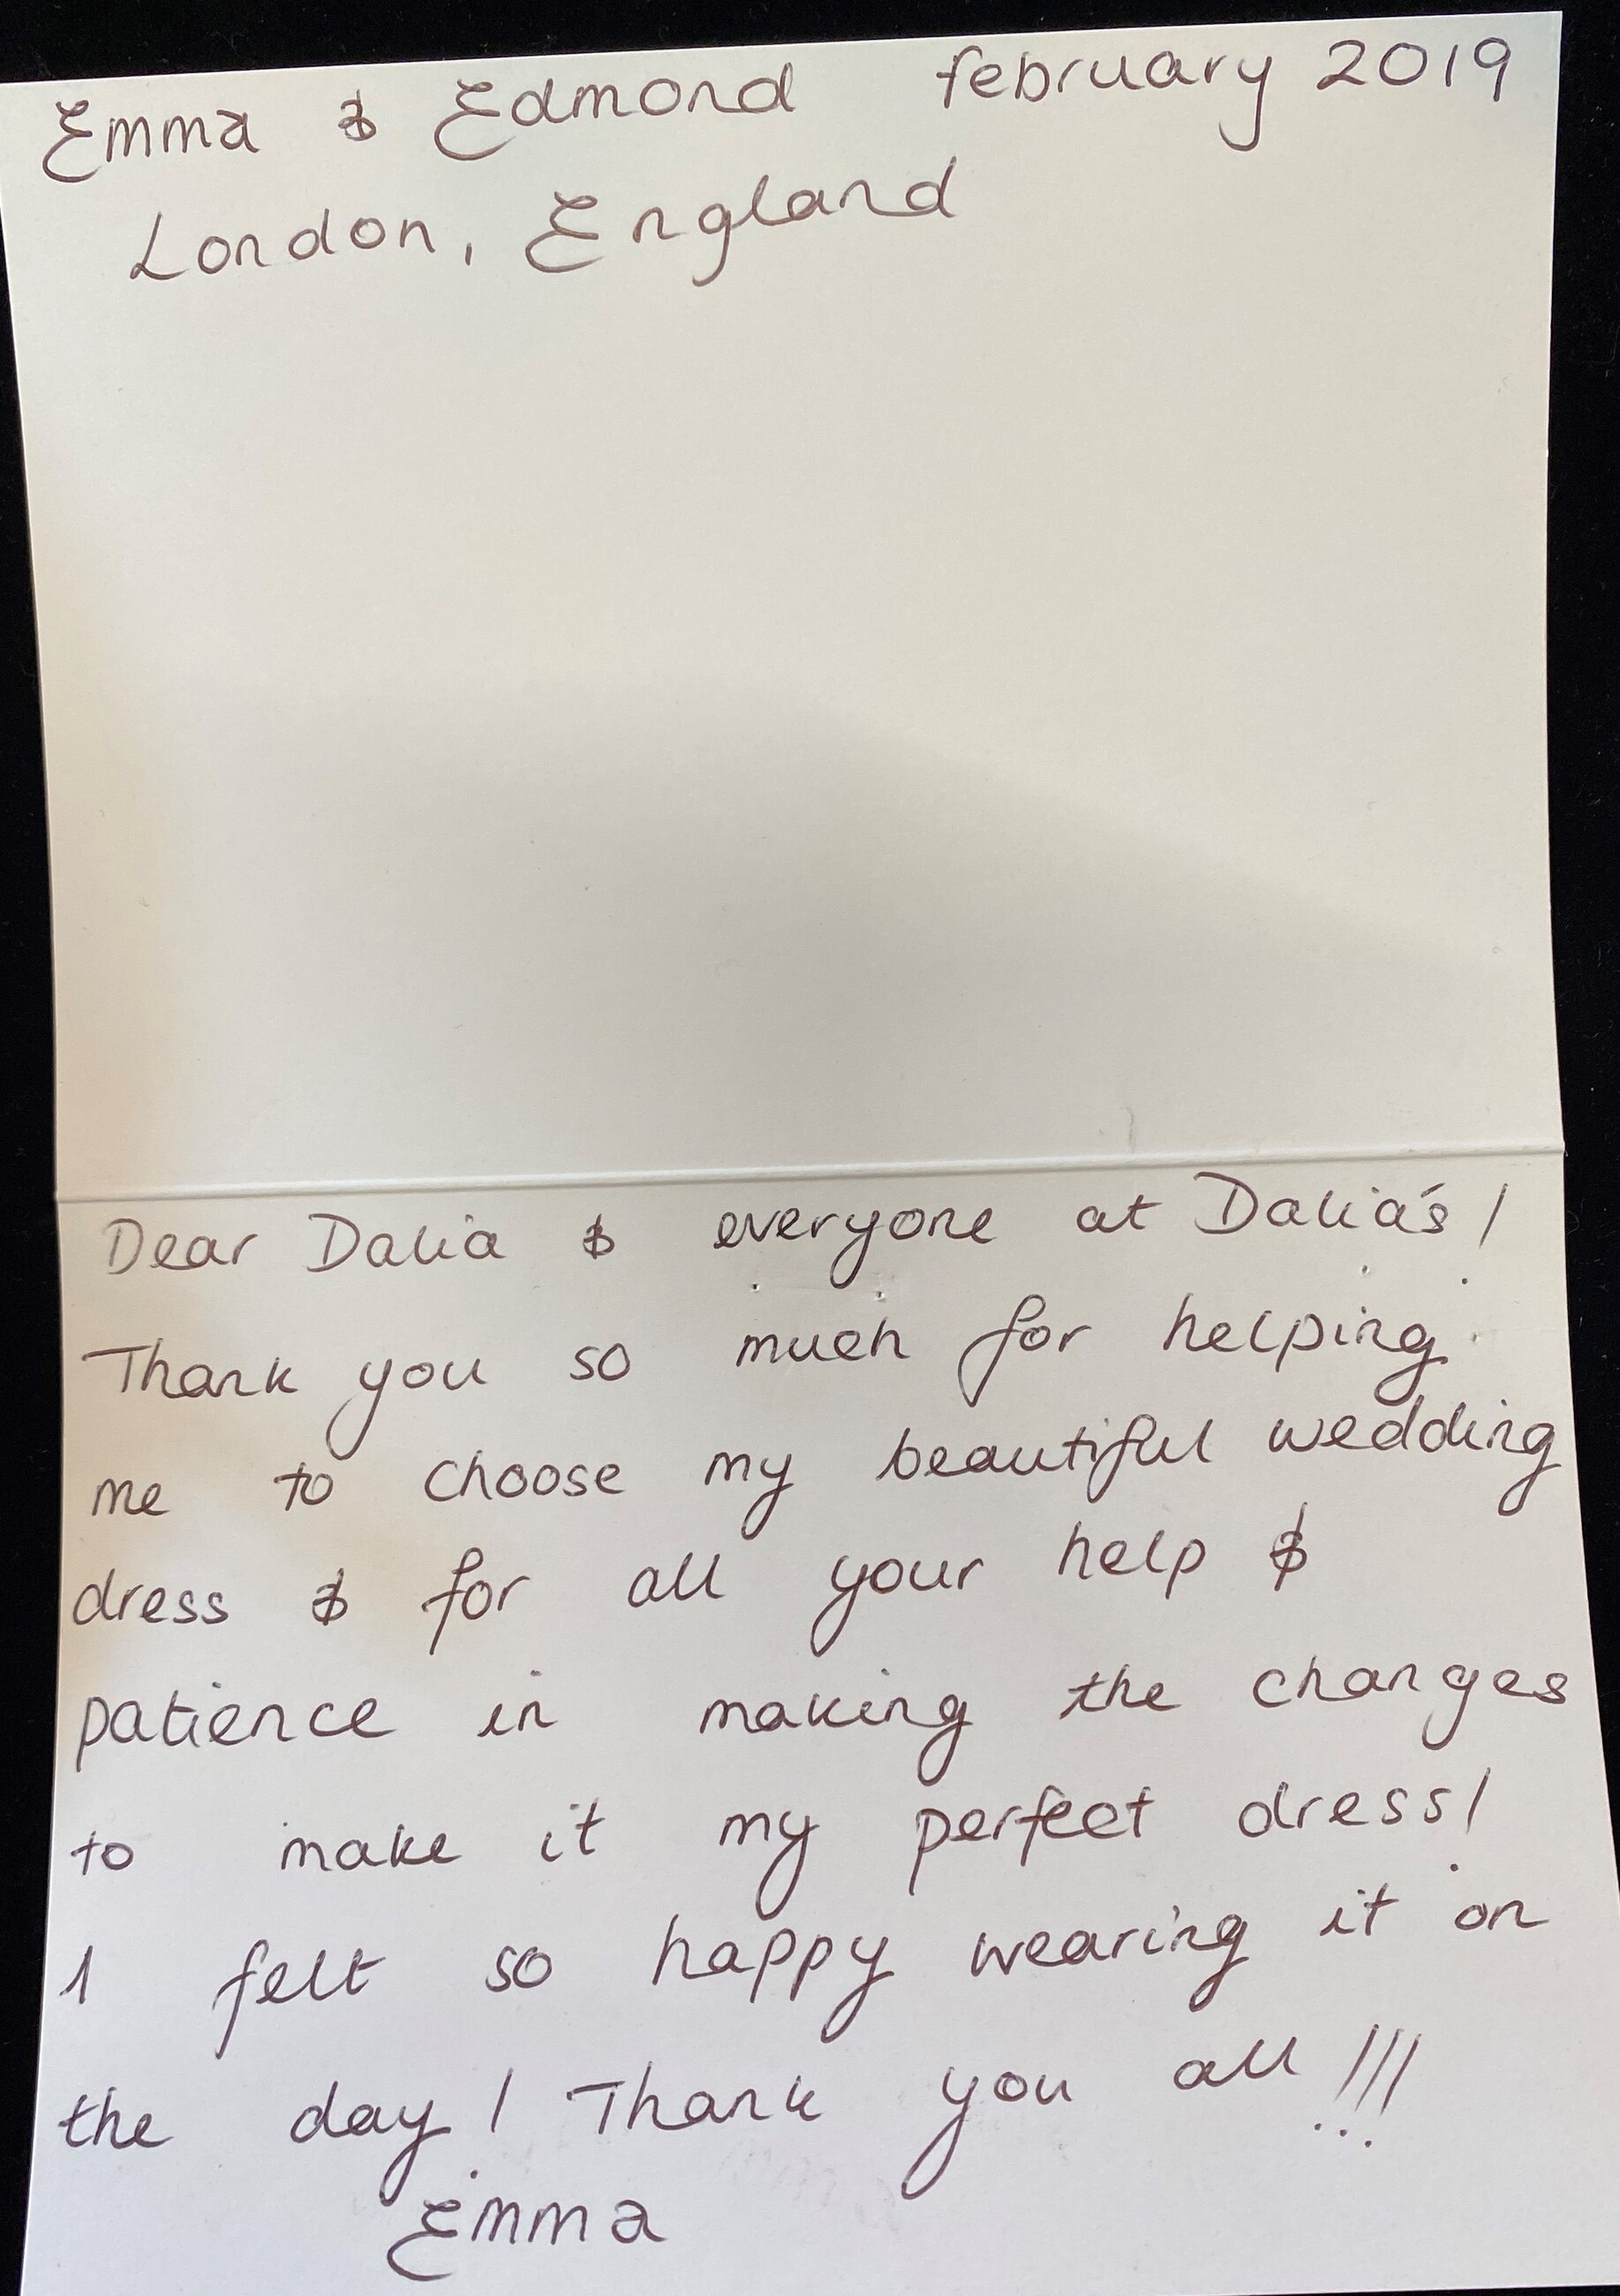 Emma & Edmond february 2019
London, England
Dear Dalia & everyone at Dalia's!
Thank you so much for helping
me to choose my beautiful wedding
dress & for all your help &
patience in making the changes
to make it my perfect dress!
I felt so happy wearing it on
the day! Thank you all!!!
Emma